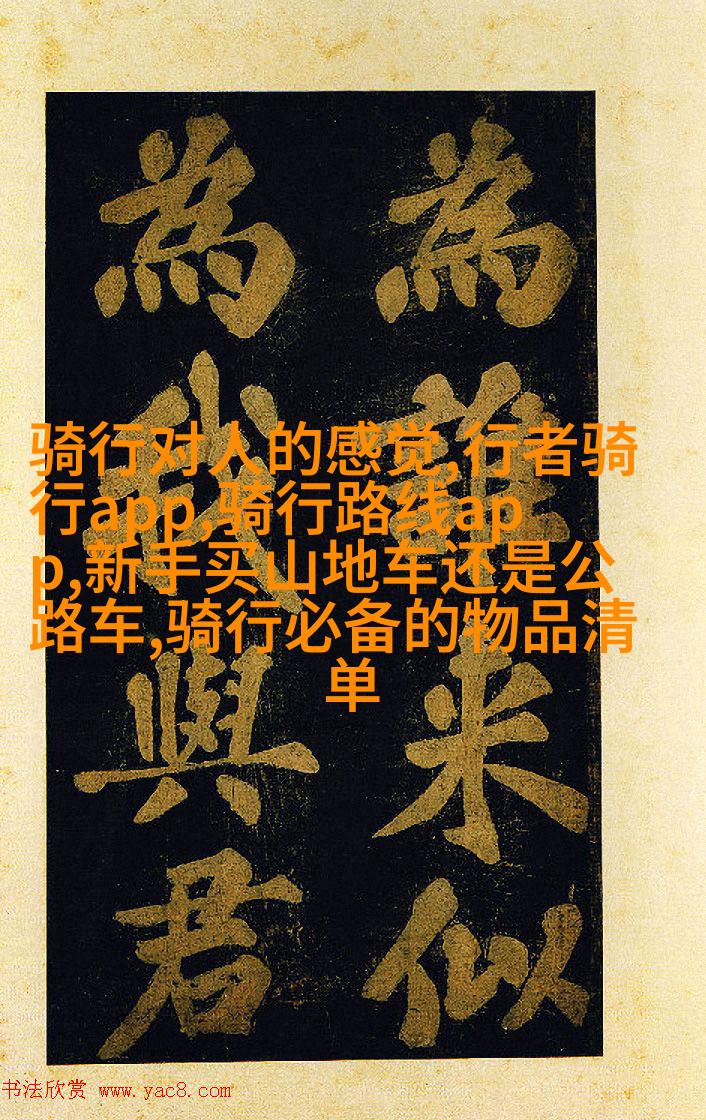 為誰来似
為我與君
骑行对人的感觉,行者骑
行app,骑行路线ap
p,新手买山地车还是公
路车,骑行必备的物品清
单
书法欣赏 www.yac8.com